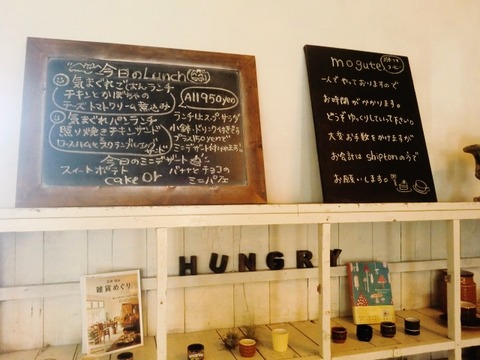 今日のLunch
気まぐれごはんランチ
チキンとかぼちゃの
チーズトマトクリーム煮込み
All 950yen
気まぐれパンランチ
照り焼きチキンサンド
ロースハムとスクランブルエッグ
サンド
ランチはスープ サラダ
小鉢・ドリンク付きです
プラス150yenで
ミニデザート付けれます。
今日のミニデザート
スイートポテト
cake or
バナナとチョコの
ミニパフェ
mogute
一人でやっておりますので
お時間がかかります。
どうぞゆっくりしていって下さい。
大変お手数をかけますが
お会計は
お願いします。
HUNGRY
雑貨めぐり